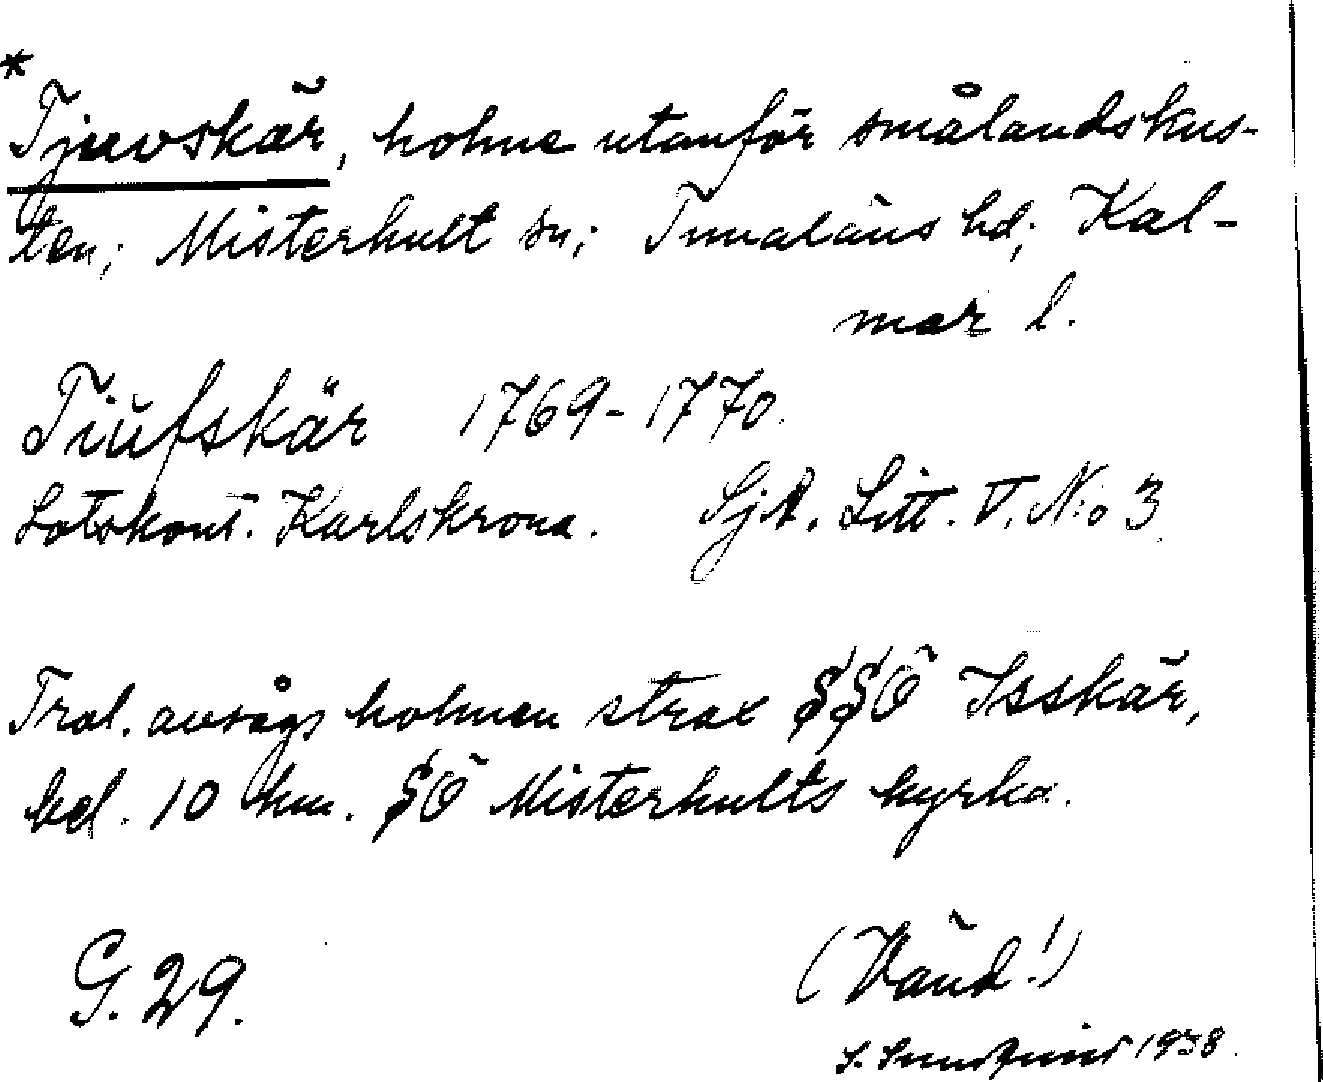 *
Tjuvskär, holme utanför smålandskus-
ten; Misterhult sn; Tunaläns hd; Kal-
mar l.
Tiŭfskär 1769-1770.
Lotskont. Karlskrona. SjA. Litt. V. N:o 3.
Trol. avsågs holmen strax SSÖ Isskär,
bel. 10 km. SÖ Misterhults kyrka.
G. 29.
(Vänd!)
S. 1938.